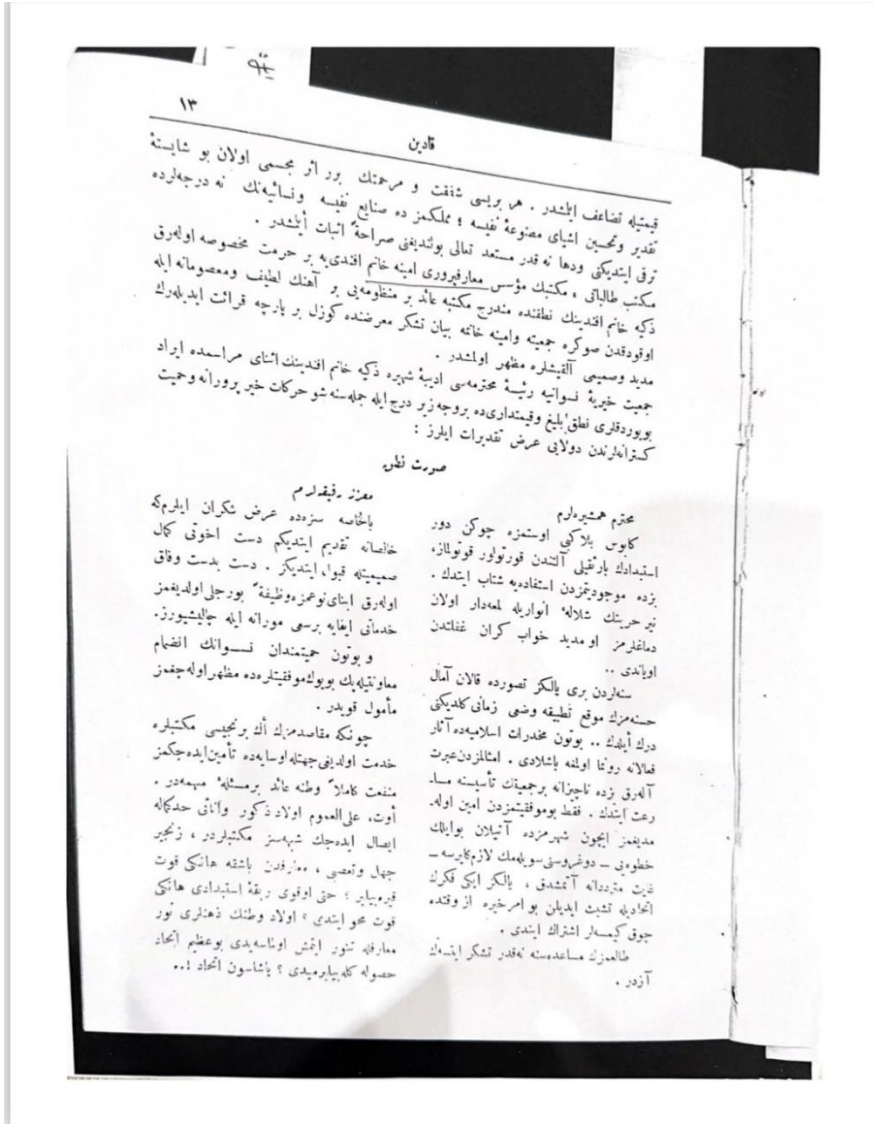 ١٣
قادين
قيمتيله تضاعف ايلمشدر . هر بريسى شفقت و مرحمتك برر اثر مجسمى اولان بو شايستهٔ
تقدير وتحسين اشياى مصنوعهٔ نفيسه ؛ مملكتمز ده صنايع نفيسه ونسائيه‌نك نه درجه‌لرده
ترقى ايتديكنى ودها نه قدر مستعد تعالى بولنديغنى صراحةً اثبات أيلمشدر .
مكتب طالباتى ، مكتبك مؤسس معارفپرورى امينه خانم افندى‌يه بر حرمت مخصوصه اوله‌رق
ذكيه خانم افندينك نطقنده مندرج مكتبه عائد بر منظومه‌يى بر آهنك لطيف ومعصومانه ايله
اوقودقدن صوكره جمعيته وامينه خانمه بيان تشكر معرضنده كوزل بر پارچه قرائت ايديله‌رك
مديد وصميمى آلقيشلره مظهر اولمشدر .
جمعيت خيريهٔ نسوانيه رئيسهٔ محترمه‌سى اديبهٔ شهيره ذكيه خانم افندينك اثناى مراسمده ايراد
بويوردقلرى نطق بليغ وقيمتدارى‌ده بروجه‌زير درج ايله جمله‌سنه شو حركات خير پرورانه وحميت
كسترانه‌لرندن دولايى عرض تقديرات ايلرز :
صورت نطق
محترم همشيره‌لرم
كابوس بلا كبى اوستمزه چوكن دور
استبدادك بارثقيلى آلتندن قورتولور قورتولماز،
بزده موجوديتمزدن استفاده‌يه شتاب ايتدك .
نير حريتك شلالهٔ انواريله لمعه‌دار اولان
دماغلرمز او مديد خواب كران غفلتدن
اوياندى ..
سنه‌لردن برى يالكز تصورده قالان آمال
حسنه‌مزك موقع تطبيقه وضعى زمانى كلديكنى
درك أيلدك .. بوتون مخدرات اسلاميه‌ده آثار
فعالانه رونما اولمغه باشلادى . امثالمزدن عبرت
آله‌رق بزده ناچيزانه برجمعيتك تأسيسنه مسا-
رعت ايتدك . فقط بوموفقيتمزدن امين اوله-
مديغمز ايچون شهرمزده آتيلان بوايلك
خطوه‌يى ــ دوغروسنى سويله‌مك لازمكليرسه ــ
غايت مترددانه آتمشدق ، يالكز ايكى فكرك
اتحاديله تشبث ايديلن بو امرخيره از وقتده
چوق كيمسه‌لر اشتراك ايتدى .
طالعمزك مساعده‌سنه نه‌قدر تشكر ايتسه‌ك
آزدر .
معزز رفيقه‌لرم
بالخاصه سزه‌ده عرض شكران ايلرم‌كه
خالصانه تقديم ايتديكم دست اخوتى كمال
صميميتله قبول ايتديكز . دست بدست وفاق
اوله‌رق ابناى‌نوعمزه‌وظيفةً بورجلى‌اولديغمز
خدماتى ايفايه برسعى مورانه ايله چاليشيورز.
و بوتون حميتمندان نسوانك انضمام
معاونتيله‌پك بويوك‌موفقيتلره‌ده مظهر‌اوله‌جغمز
مأمول قويدر .
چونكه مقاصدمزك أك برنجيسى مكتبلره
خدمت اولديغى جهتله‌اوسايه‌ده تأمين‌ايده‌جكمز
منفعت كاملاً وطنه عائد برمسئلهٔ مهمه‌در .
أوت، على‌العموم اولاد ذكور واناثى حدكماله
ايصال ايده‌جك شبهه‌سز مكتبلردر ، زنجير
جهل وتعصبى ، معارفدن باشقه هانكى قوت
قيره‌بيلير ؟ حتى اوقوى ربقهٔ استبدادى هانكى
قوت محو ايتدى ؟ اولاد وطنك ذهنلرى نور
معارفله تنور ايتمش اولماسه‌يدى بوعظيم اتحاد
حصوله كله‌بيليرميدى ؟ ياشاسون اتحاد !..